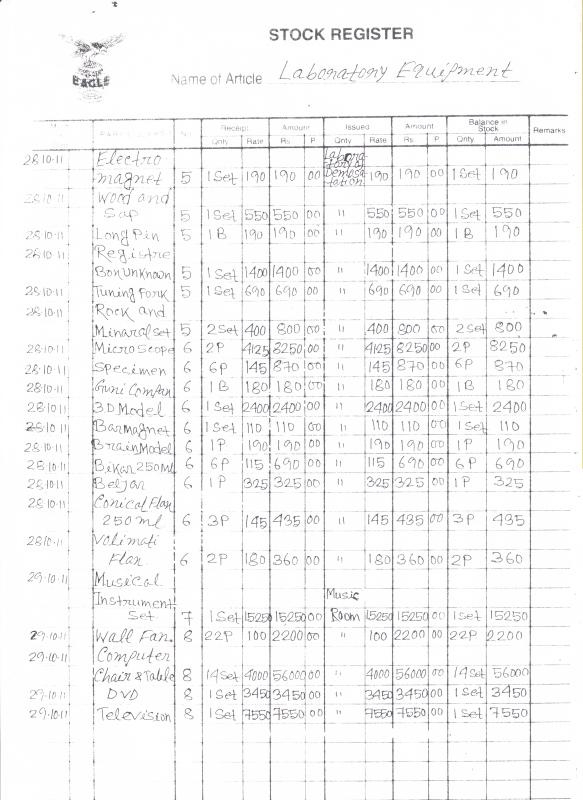 STOCK REGISTER
EAGLE
Name of Article Laboratony Equipment
Receipt Amount Issued Amount Balance in Stock Remarks
Qnty Rate Rs. P Qnty Rate Rs. P Qnty Amount
28.10.11 Electro
magnet 5 1 Set 190 190 00 190 190 00 1 Set 190
28.10.11 Word and
Sap 5 1 Set 550 550 00 " 550 550 00 1 Set 550
28.10.11 Long Pin 5 1 B 190 190 00 " 190 190 00 1 B 190
28.10.11 Registre
Bon Unknown 5 1 Set 1400 1400 00 " 1400 1400 00 1 Set 1400
28.10.11 Tuning Fork 5 1 Set 690 690 00 " 690 690 00 1 Set 690
28.10.11 Rock and
Minaral set 5 2 Set 400 800 00 " 400 800 00 2 Set 800
28.10.11 Micro Scope 6 2P 4125 8250 00 " 4125 8250 00 2P 8250
28.10.11 Specimen 6 6P 145 870 00 " 145 870 00 6P 870
28.10.11 6 1 B 180 180 00 " 180 180 00 1 B 180
28.10.11 3D Model 6 1 Set 2400 2400 00 " 2400 2400 00 1 Set 2400
28.10.11 Bar Magnet 6 1 Set 110 110 00 " 110 110 00 1 Set 110
28.10.11 Brain Model 6 1P 190 190 00 " 190 190 00 1P 190
28.10.11 Bikar 250 ml 6 6P 115 690 00 " 115 690 00 6P 690
28.10.11 Beljar 6 1P 325 325 00 " 325 325 00 1P 325
28.10.11 Conical Flan
250 ml 6 3P 145 435 00 " 145 435 00 3P 435
28.10.11 Volimati
Flan. 6 2P 180 360 00 " 180 360 00 2P 360
29.10.11 Musical
Instrument Music
Set. 7 1 Set 15250 15250 00 Room 15250 15250 00 1 Set 15250
29.10.11 Wall Fan. 8 22P 100 2200 00 " 100 2200 00 22P 2200
29.10.11 Computer
Chair & Table 8 14 Set 4000 56000 00 " 4000 56000 00 14 Set 56000
29.10.11 DVD 8 1 Set 3450 3450 00 " 3450 3450 00 1 Set 3450
29.10.11 Television 8 1 Set 7550 7550 00 " 7550 7550 00 1 Set 7550